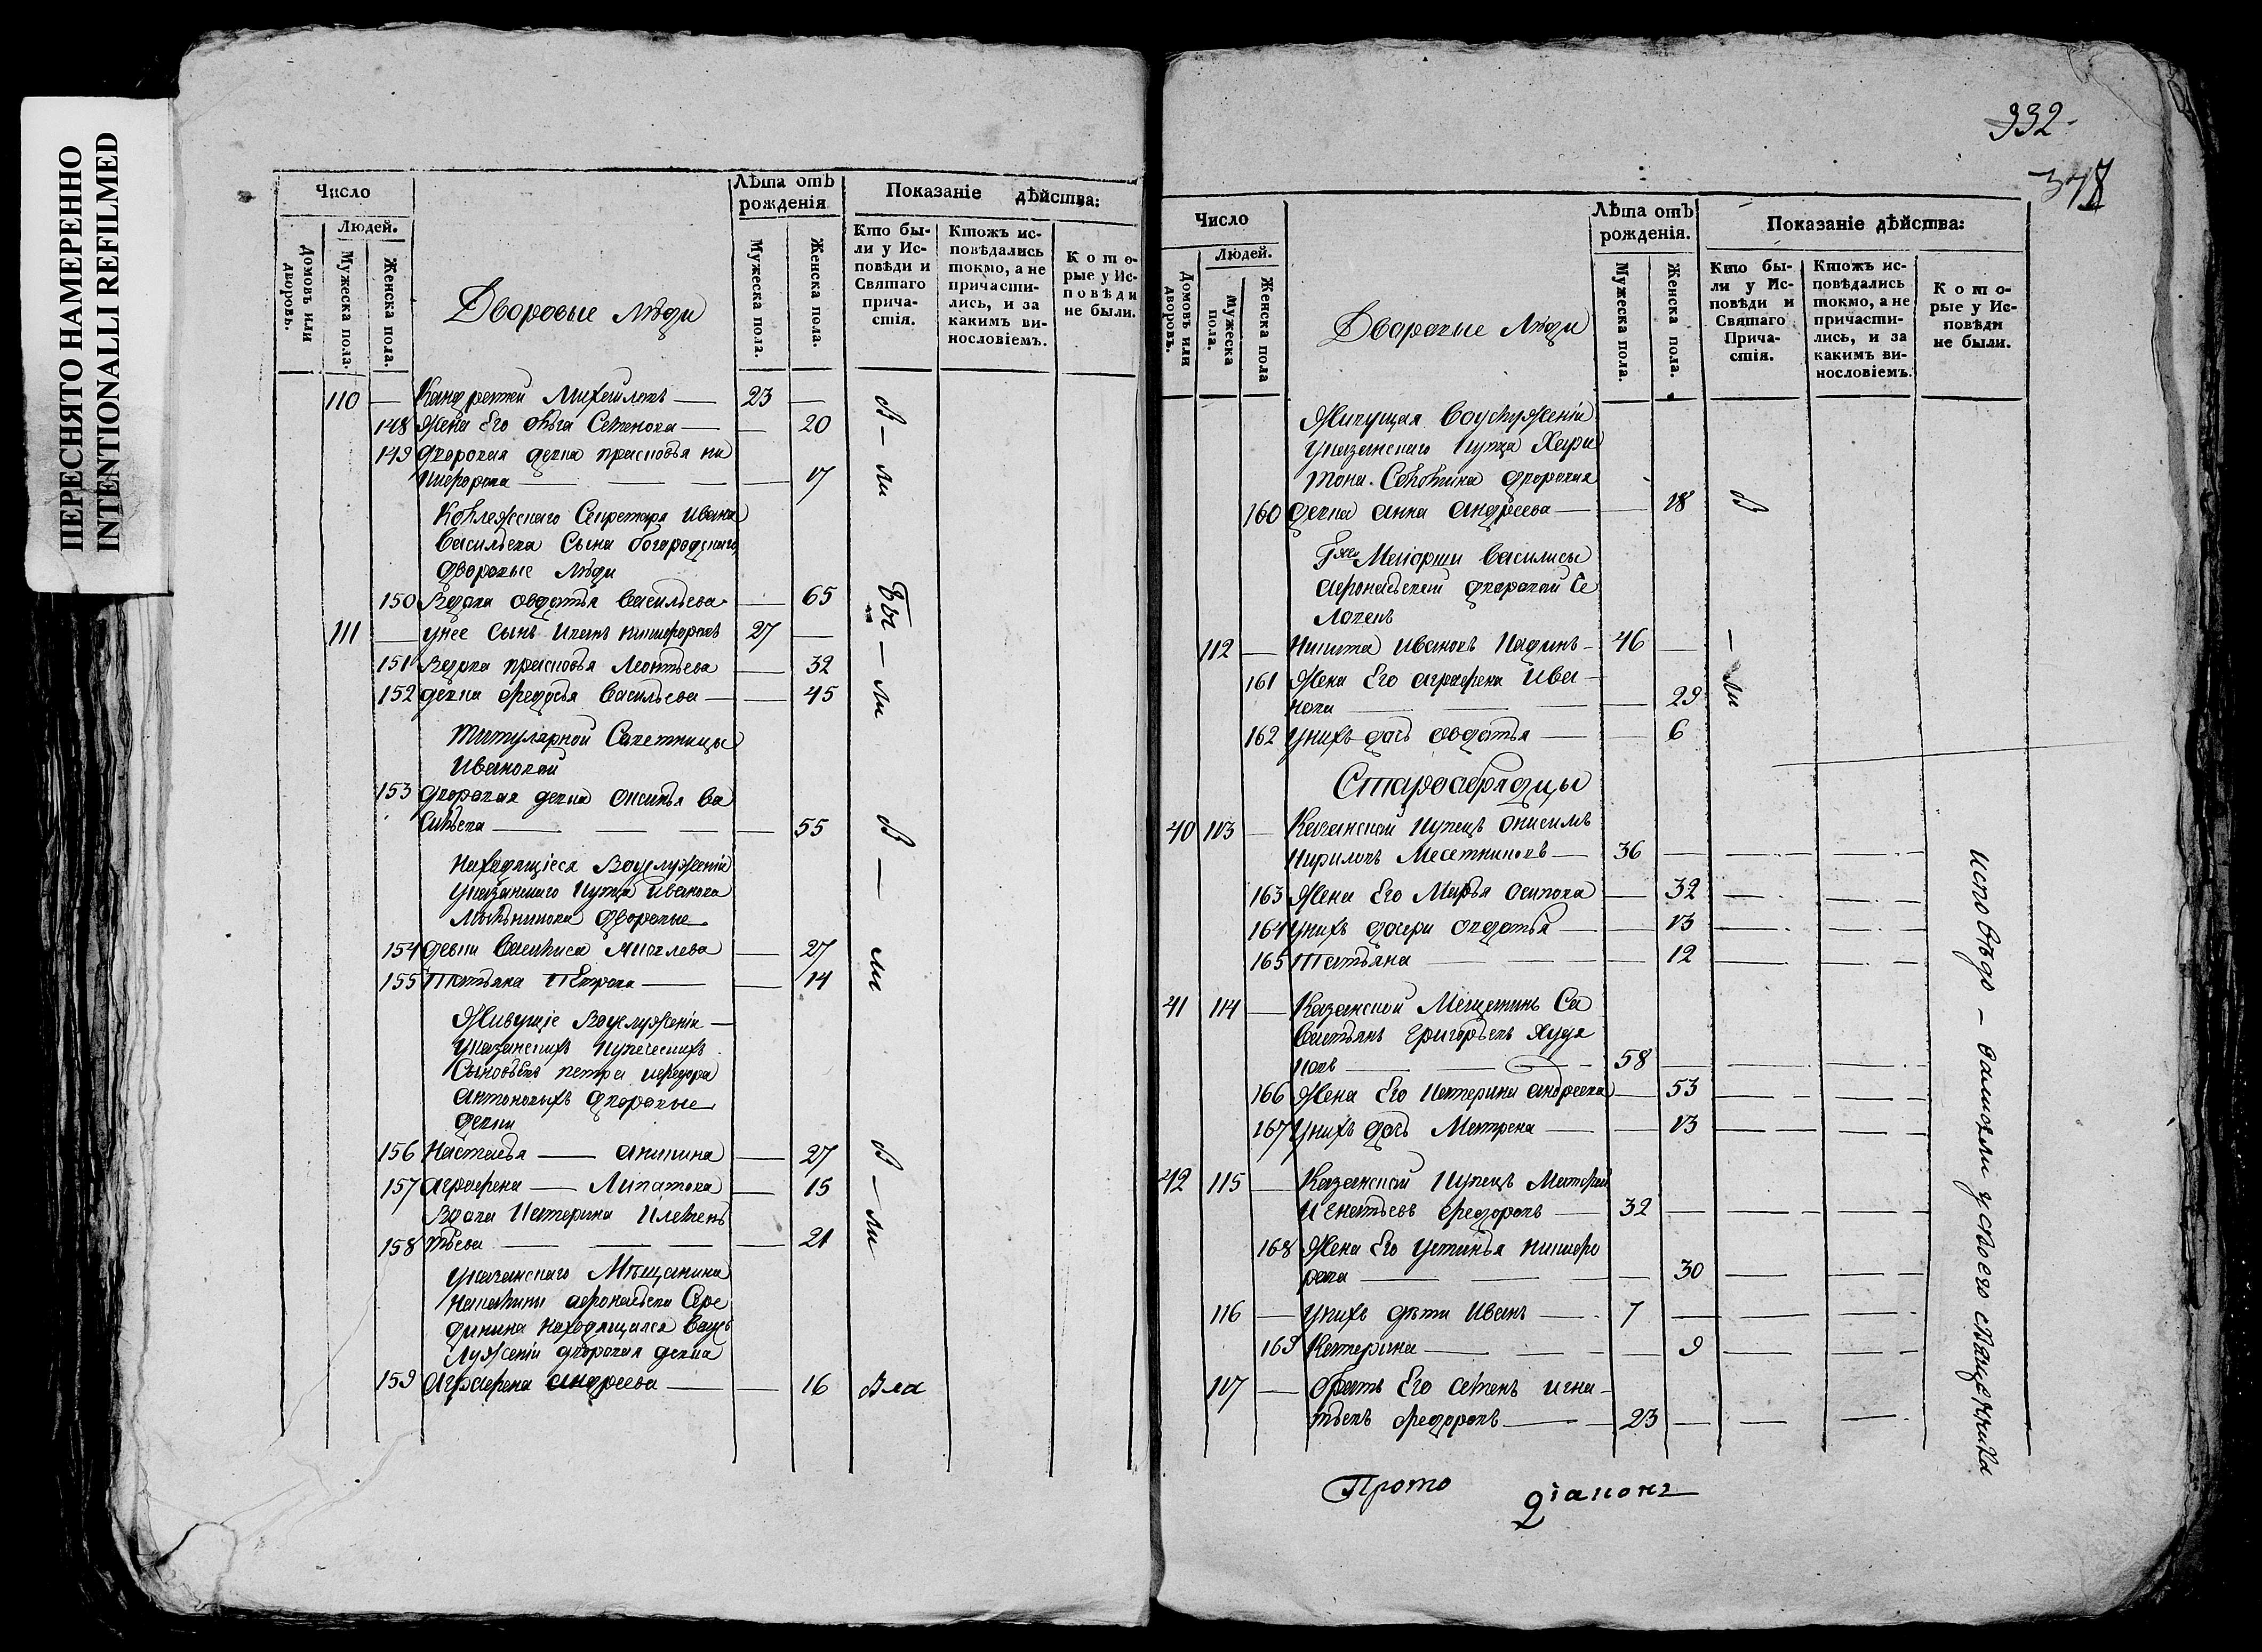 ПЕРЕСНЯТО НАМЕРЕННО
INTENTIONALLI REFILMED
Число
Людей.
Домовъ или дворовъ.
Мужеска пола.
Женска пола.
Дворовые люди
Лѣта отъ рожденія
Мужеска пола.
Женска пола.
Показаніе дѣйства:
Кто были у Исповѣди и Святаго причастія.
Ктожъ исповѣдались токмо, а не причастились, и за какимъ винословіемъ.
Которые у Исповѣди не были.
110 — Кандратей Михайловъ — 23 —
148 Жена Его Ольга Семенова — — 20
149 дворовая девка прасковья ни
кифорова — — — — 17
Коллежскаго Секретаря Ивана
Васильева Сына богородскаго
дворовые люди
150 Вдова овдотья Васильева — — 65
111 — унее Сынъ Иванъ никифоровъ 27 —
151 Вдова прасковья Леонтьева — 32
152 девка федосья Васильева — — 45
Титулярной Советницы
Ивановой
153 дворовая девка Оксинья Ва
сильева — — — — 55
Находящіеся Воуслуженіи
указанскаго купца Иванова
дворовые
154 девки Василиса Яковлева — 27
155 Татьяна Петрова — — 14
Живущіе Воуслуженіи —
указанскихъ купеческихъ
Сыновьевъ петра ифедора
Антоновыхъ дворовые
девки
156 Настасья — Аникина — 27
157 Аграфена — Липатова — 15
Вдова Катерина Клемень
158 тьева — — — — 21
указанскаго Мѣщанина
Никитины афонасьева Сре
динина находящаяся Воус
луженіи дворовая девка
159 Аграфена Андреева — — 16 Вла
В — ли
Бы — ли
В — ли
В — ли
332
Число
Людей.
Домовъ или дворовъ.
Мужеска пола.
Женска пола
Дворовые люди
Лѣта отъ рожденія.
Мужеска пола.
Женска пола.
Показаніе дѣйства:
Кто были у Исповѣди и Святаго Причастія.
Ктожъ исповѣдались токмо, а не причастились, и за какимъ винословіемъ.
Которые у Исповѣди не были.
Живущая Воуслуженіи
указанскаго купца Хари
тона дворовая
160 девка Анна Андреева — — 18 В
Маіорши Василисы
афонасьевой дворовой Че
ловекъ
112 — Никита Ивановъ — 46 —
161 Жена Его аграфена Ива —
нова — — — 29
162 унихъ дочь овдотья — — 6
— ли
Старообрядцы
40 113 — Казанской купецъ Онисимъ
Кириловъ Месетниковъ — 36 —
163 Жена Его Марья Осипова — 32
164 унихъ дочери овдотья — — 13
165 Татьяна — — — 12
41 114 — Казанской Мещанинъ Са
вастьянъ Григорьевъ Худя
ковъ — — 58
166 Жена Его Катерина Андреева — 53
167 унихъ дочь Матрена — — 13
42 115 — Казанской купецъ Матфей
Игнатьевъ Федоровъ — 32
168 Жена Его Устинья никифо
рова — — — 30
116 — унихъ дѣти Иванъ — 7 —
169 Катерина — — — 9
117 — братъ Его Семенъ игна —
тьевъ федоровъ — — 23 —
исповѣдо — валисли у своего священника
Прото діаконъ